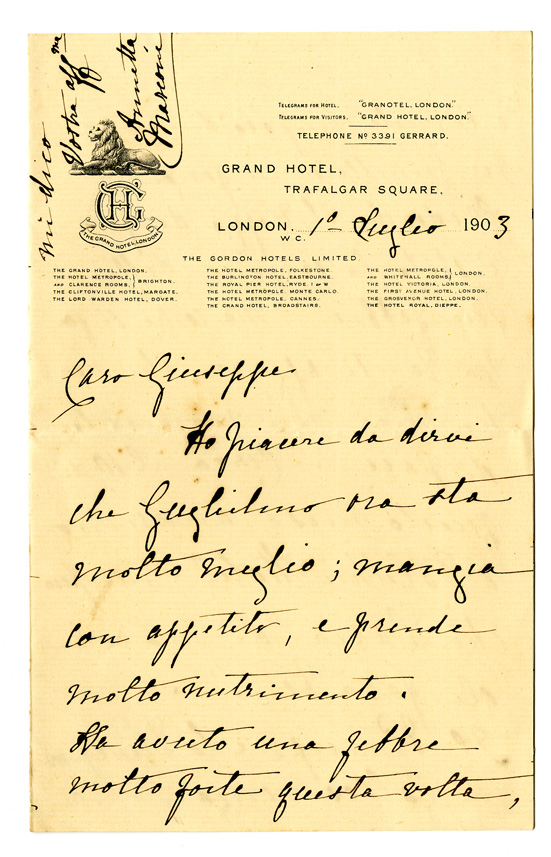 mi dico
Vostra affma
Annetta
Marconi
TELEGRAMS FOR HOTEL, "GRANOTEL, LONDON."
TELEGRAMS FOR VISITORS, "GRAND HOTEL, LONDON."
TELEPHONE No 3391 GERRARD.
GRAND HOTEL,
TRAFALGAR SQUARE,
LONDON, 1° Luglio 1903
W.C.
GH
THE GRAND HOTEL, LONDON
THE GORDON HOTELS LIMITED.
THE GRAND HOTEL, LONDON. THE HOTEL METROPOLE, FOLKESTONE. THE HOTEL METROPOLE,
THE HOTEL METROPOLE, THE BURLINGTON HOTEL, EASTBOURNE. AND WHITEHALL ROOMS LONDON.
AND CLARENCE ROOMS, BRIGHTON. THE ROYAL PIER HOTEL, RYDE, I OF W THE HOTEL VICTORIA, LONDON.
THE CLIFTONVILLE HOTEL, MARGATE. THE HOTEL METROPOLE, MONTE CARLO. THE FIRST AVENUE HOTEL, LONDON.
THE LORD WARDEN HOTEL, DOVER. THE HOTEL METROPOLE, CANNES. THE GROSVENOR HOTEL, LONDON.
THE GRAND HOTEL, BROADSTAIRS. THE HOTEL ROYAL, DIEPPE.
Caro Giuseppe
Ho piacere da dirvi
che Guglielmo ora sta
molto meglio; mangia
con appetito, e prende
molto nutrimento.
Ha avuto una febbre
molto forte questa volta,